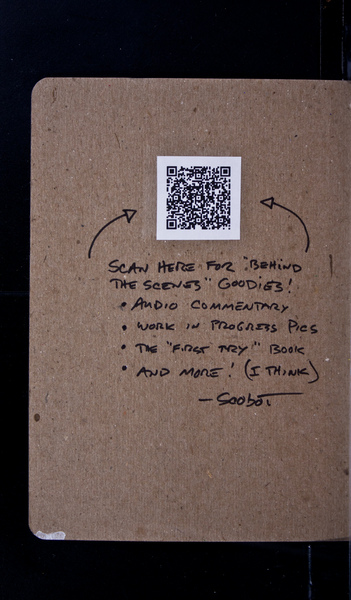 SCAN HERE FOR "BEHIND
THE SCENES" GOODIES!
• AUDIO COMMENTARY
• WORK IN PROGRESS PICS
• THE "FIRST TRY" BOOK
• AND MORE! (I THINK)
— Soobot